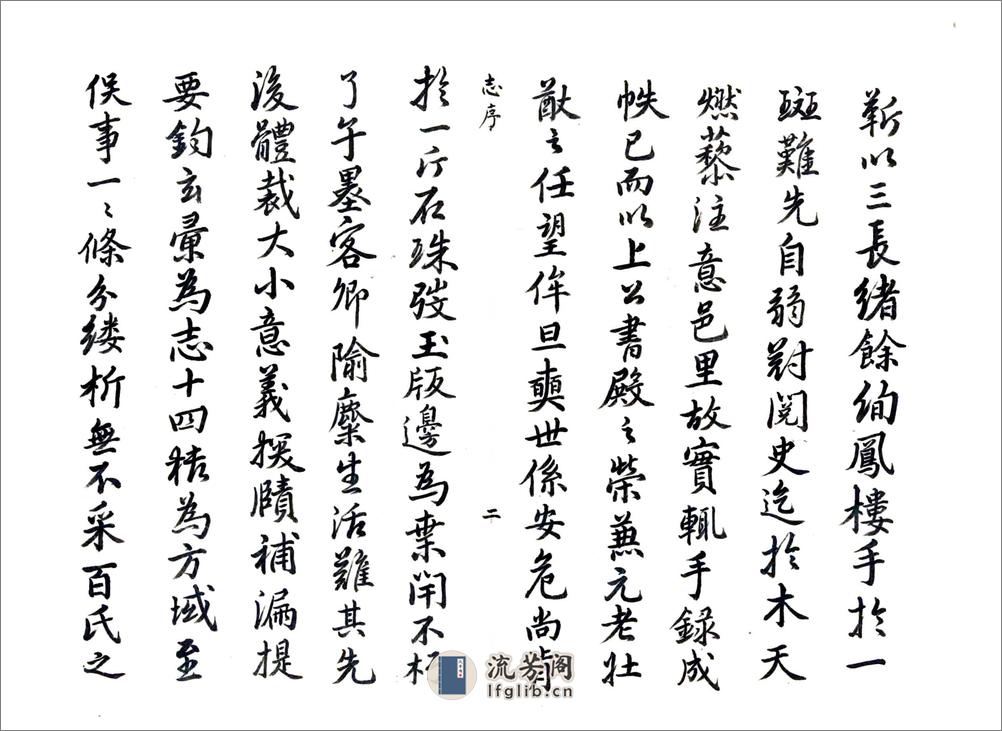 靳以三長緒餘絢鳳樓手於一
斑難先自弱對閱史迄於木天
燃藜注意邑里故實輒手錄成
帙已而以上公書殿之榮兼元老壯
猷之任望侔旦奭世係安危尚
志序
二
於一斤石珠弢玉版邊為棄閑不
了午墨客卿隃麋生活難其先
後體裁大小意義探賾補漏提
要鈎玄彙為志十四括為方域至
俁事一〻條分縷析無不采百氏之
流芳阁
lfglib.cn